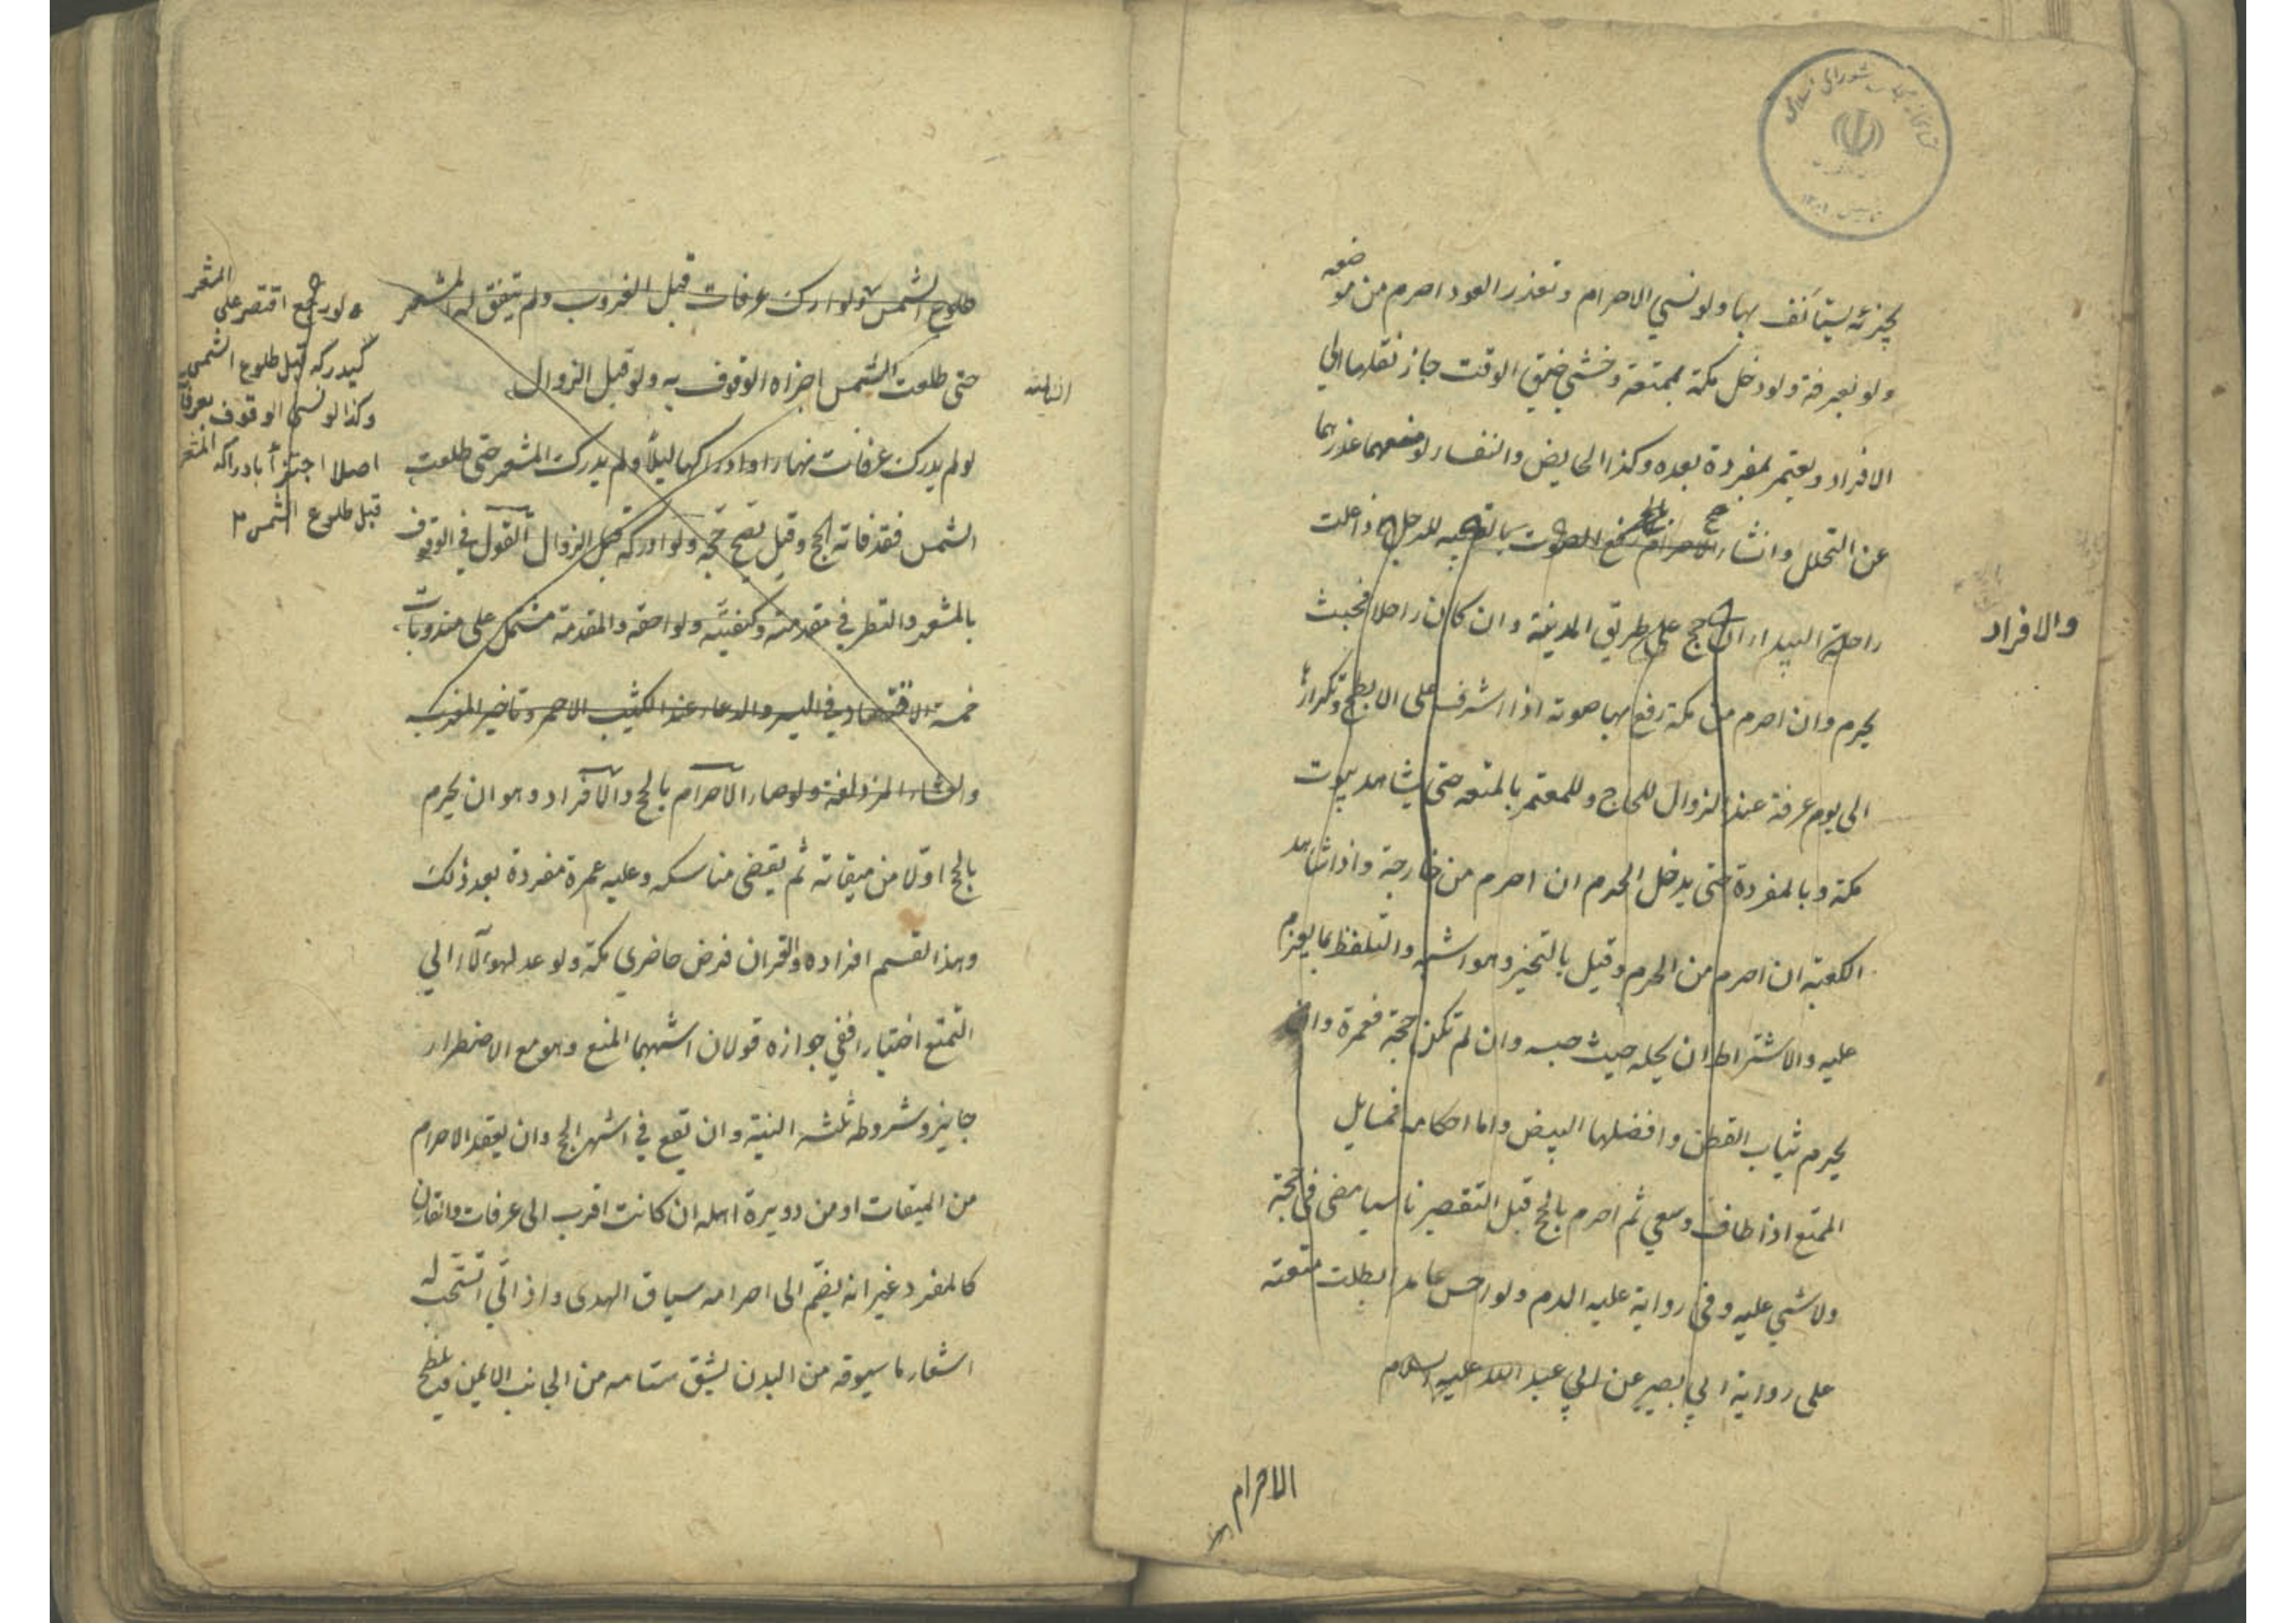 يجزئه يستأنف بها ولو نسي الاحرام وتعذر العود احرم من موضعه
ولو بعرفة ولو دخل مكة بمتعة وخشي ضيق الوقت جاز نقلها الى
الافراد ويعتمر بمفردة بعده وكذا الحايض والنفساء لو منعهما عذرهما
عن التحلل وانشاء الاحرام بالحج رفع الصوت بالتلبيه للرجل اذا علت
راحلته البيداء ان حج على طريق المدينة وان كان راجلا فحيث
يحرم وان احرم من مكة رفع بها صوته اذا اشرف على الابطح وتكرارها
الى يوم عرفة عند الزوال للحاج وللمعتمر بالمتعه حتى يشاهد بيوت
مكة وبالمفردة حتى يدخل الحرم ان احرم من خارجة واذا شاهد
الكعبة ان احرم من الحرم وقيل بالتخيير وهو اشبه والتلفظ بما يعزم
عليه والاشتراط ان يحله حيث حبسه وان لم تكن حجة فعمرة وان
يحرم بثياب القطن وافضلها البيض واما احكامه فمسايل
المتمتع اذا طاف وسعي ثم احرم بالحج قبل التقصير ناسيا مضى في حجته
ولا شيي عليه وفي رواية عليه الدم ولو احرم عامدا بطلت متعته
على رواية ابي بصير عن ابي عبد الله عليه السلام
والافراد
الاحرام
طلوع الشمس ولو ادرك عرفات قبل الغروب ولم يتفق له المشعر
حتى طلعت الشمس اجزاه الوقوف به ولو قبل الزوال
الثانية
لو لم يدرك عرفات نهارا وادركها ليلاً ولم يدرك المشعر حتى طلعت
الشمس فقد فاته الحج وقيل يصح حجه ولو ادركه قبل الزوال القول في الوقوف
بالمشعر والنظر في مقدمته وكيفيته ولواحقه والمقدمه مشتمل على مندوبات
خمسة الاقتصاد في السير والدعاء عند الكثيب الاحمر وتاخير المغرب
والعشاء المزدلفة ولو صار الاحرام بالحج والافراد وهو ان يحرم
بالحج اوّلا من ميقاته ثم يقضى مناسكه وعليه عمرة مفردة بعد ذلك
وهذا القسم افراده والقران فرض حاضري مكة ولو عدل هولاء الي
التمتع اختيارا ففي جوازه قولان اشبههما المنع وهو مع الاضطرار
جايز وشروطه ثلثه النية وان تقع في اشهر الحج وان يعقد الاحرام
من الميقات او من دويرة اهله ان كانت اقرب الى عرفات والقارن
كالمفرد غير انه يضم الى احرامه سياق الهدى واذا لبّي استحب له
اشعار ما سيوقه من البدن بشق سنامه من الجانب الايمن ويلطخ
ولو رجع اقتصر على المشعر
ليدركه قبل طلوع الشمس
وكذا لو نسى الوقوف بعرفات
اصلا اجتزأ بادراكه المشعر
قبل طلوع الشمس